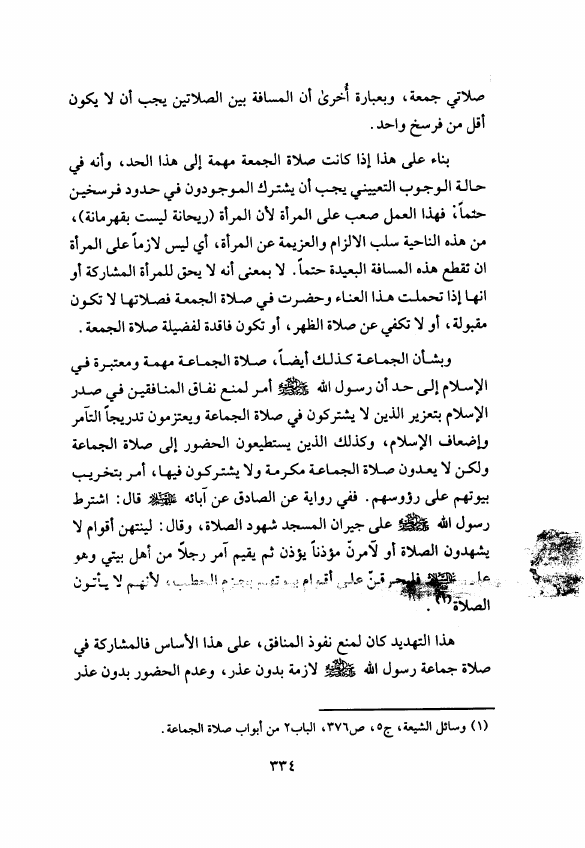 صلاتي جمعة، وبعبارة أُخرىٰ أن المسافة بين الصلاتين يجب أن لا يكون
أقل من فرسخ واحد.
بناء على هذا إذا كانت صلاة الجمعة مهمة إلى هذا الحد، وأنه في
حالة الوجوب التعييني يجب أن يشترك الموجودون في حدود فرسخين
حتماً، فهذا العمل صعب على المرأة لأن المرأة (ريحانة ليست بقهرمانة)،
من هذه الناحية سلب الالزام والعزيمة عن المرأة، أي ليس لازماً على المرأة
ان تقطع هذه المسافة البعيدة حتماً. لا بمعنى أنه لا يحق للمرأة المشاركة أو
انها إذا تحملت هذا العناء وحضرت في صلاة الجمعة فصلاتها لا تكون
مقبولة، أو لا تكفي عن صلاة الظهر، أو تكون فاقدة لفضيلة صلاة الجمعة.
وبشأن الجماعة كذلك أيضاً، صلاة الجماعة مهمة ومعتبرة في
الإسلام إلى حد أن رسول الله ﷺ أمر لمنع نفاق المنافقين في صدر
الإسلام بتعزير الذين لا يشتركون في صلاة الجماعة ويعتزمون تدريجاً التآمر
وإضعاف الإسلام، وكذلك الذين يستطيعون الحضور إلى صلاة الجماعة
ولكن لا يعدون صلاة الجماعة مكرمة ولا يشتركون فيها، أمر بتخريب
بيوتهم على رؤوسهم. ففي رواية عن الصادق عن آبائه قال: اشترط
رسول الله ﷺ على جيران المسجد شهود الصلاة، وقال: لينتهن أقوام لا
يشهدون الصلاة أو لآمرنّ مؤذناً يؤذن ثم يقيم آمر رجلاً من أهل بيتي وهو
علي فليحرقنّ على أقوام بيوتهم بحزم الحطب، لأنهم لا يأتون
الصلاة(١).
هذا التهديد كان لمنع نفوذ المنافق، على هذا الأساس فالمشاركة في
صلاة جماعة رسول الله ﷺ لازمة بدون عذر، وعدم الحضور بدون عذر
(١) وسائل الشيعة، ج٥، ص٣٧٦، الباب٢ من أبواب صلاة الجماعة.
٣٣٤